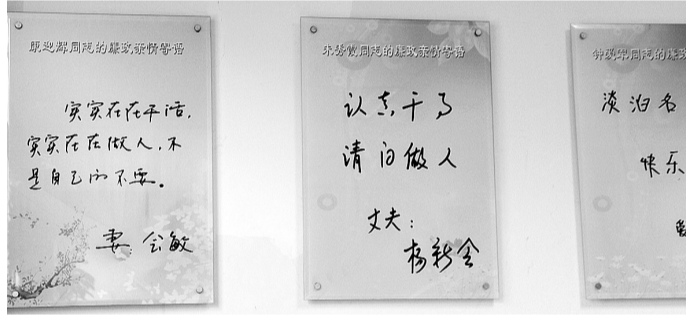 康迎辉同志的廉政亲情寄语
实实在在干活,
实实在在做人,不
是自己的不要。
妻 会敏
同志的廉政亲情寄语
认真干事
清白做人
丈夫:
杨新会
同志的廉政
淡泊名
快乐